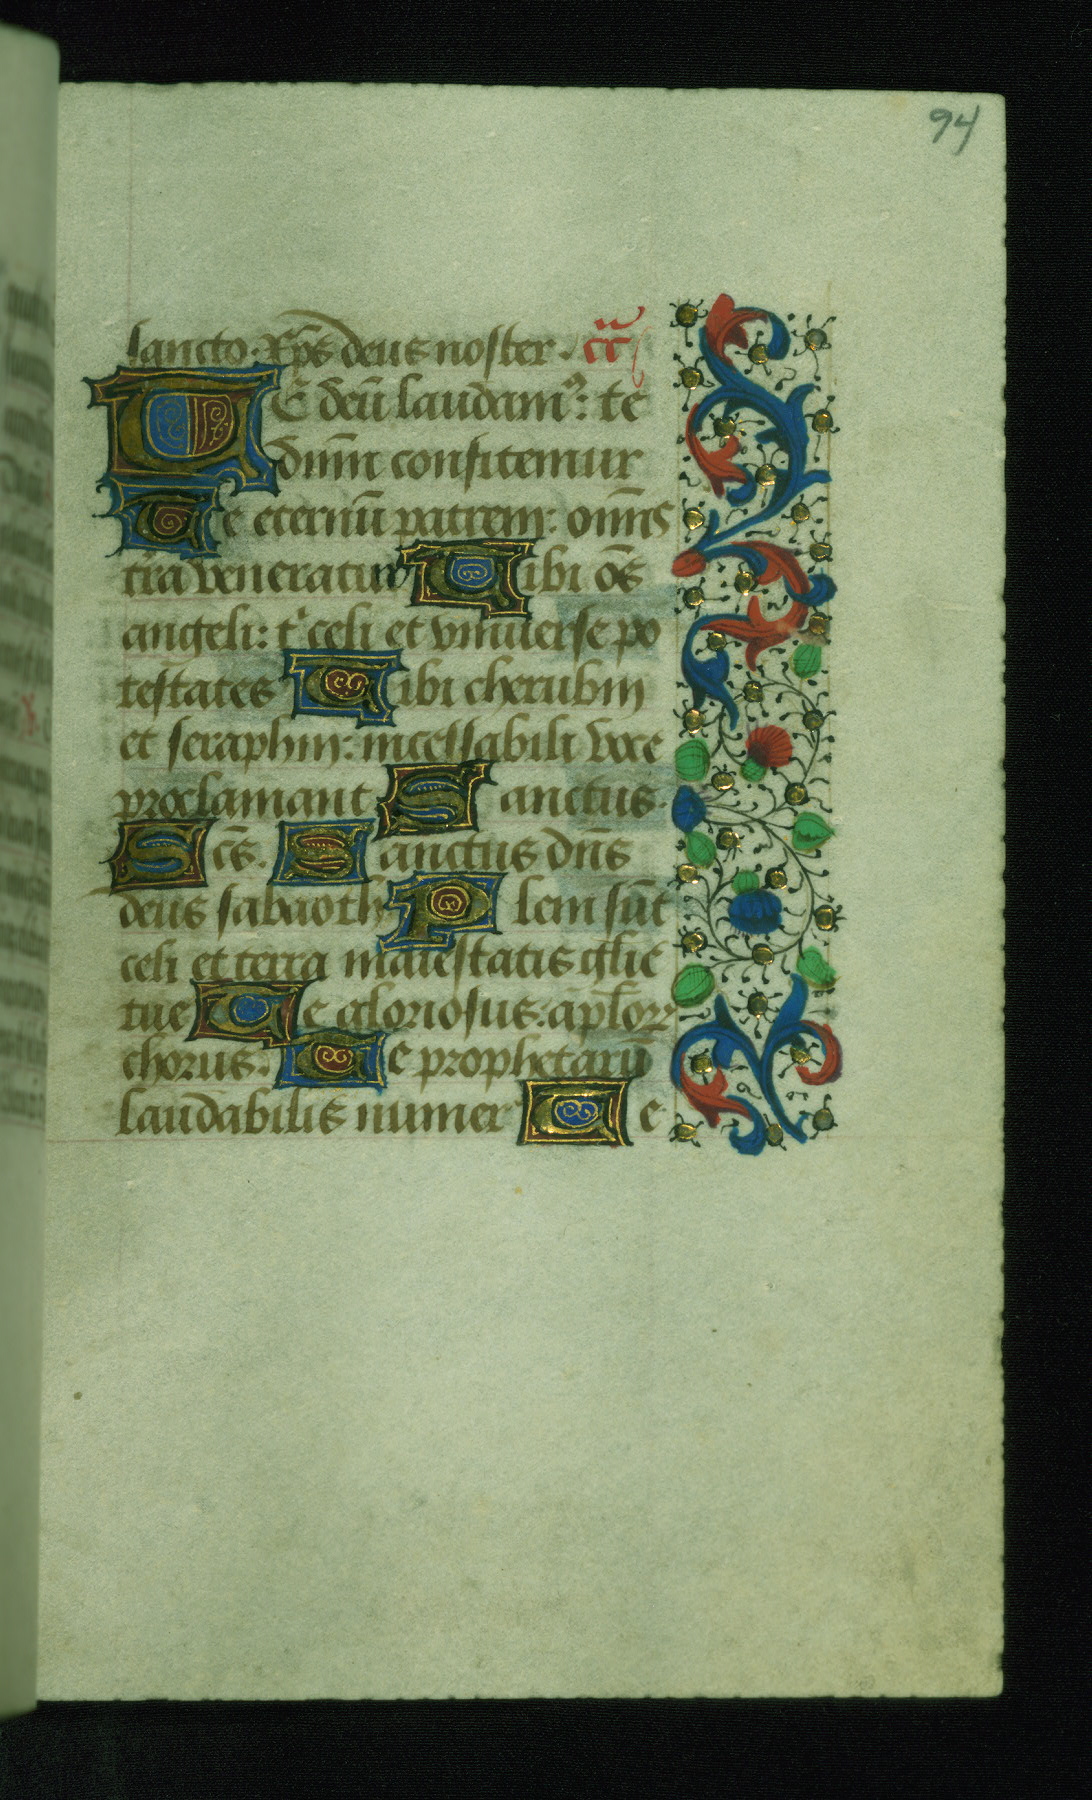 94
sancto. xp̄s deus noster. c̄c̄
TE deū laudamꝰ: te
dn̄m confitemur
Te eternū patrem: omīs
tr̄a veneratur Tibi om̄s
angeli: tⁱ celi et vniuerse po
testates Tibi cherubin
et seraphin: incessabili voce
proclamant Sanctus.
Sc̄s. Sanctus dn̄s
deus sabaoth Pleni sūt
celi et terra maiestatis glīe
tue Te gloriosus: ap̄lorꝝ
chorus: Te prophetarū
laudabilis numerꝰ Te